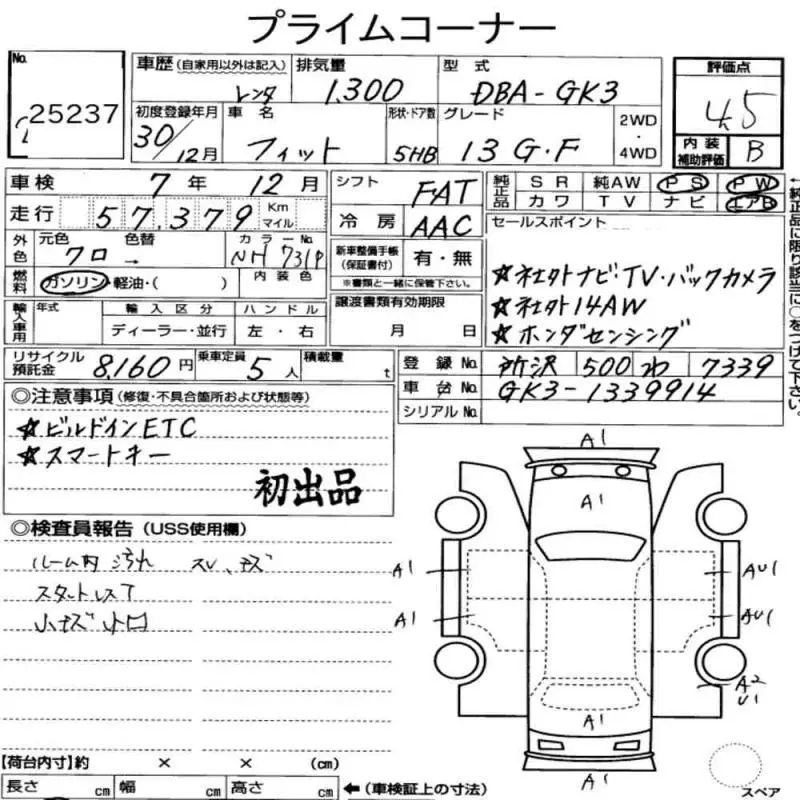 プライムコーナー
No. 25237
車歴 (自家用以外は記入) レンタ
排気量 1.300
型式 DBA-GK3
評価点 4.5
初度登録年月 30/12月
車名 フィット
形状・ドア数 5HB
グレード 13G・F
2WD・4WD
内装補助評価 B
車検 7年 12月
シフト FAT
純正品 SR 純AW PS PW
カワ TV ナビ エアB
走行 57,379 Km マイル
冷房 AAC
セールスポイント
外色 元色 クロ 色替 →
カラーNo. NH731P
新車整備手帳(保証書付) 有・無
※書類と一緒に保管下さい。
☆社外ナビ・TV・バックカメラ
☆社外14AW
☆ホンダセンシング
燃料 ガソリン・軽油・( )
内装色
輸入車用 年式 輸入区分 ハンドル
ディーラー・並行 左・右
譲渡書類有効期限
月 日
←純正品に限り該当に○をつけて下さい。
リサイクル預託金 8,160円
乗車定員 5人
積載量 t
登録No. 所沢 500 わ 7339
車台No. GK3-1339914
シリアルNo.
◎注意事項 (修復・不具合箇所および状態等)
☆ビルドインETC
☆スマートキー
初出品
◎検査員報告 (USS使用欄)
ルーム内 汚れ スレ、キズ
スタットレスT
小キズ 小凹
A1
A1
A1 AU1
A1 AU1
A2
U1
A1
A1
スペア
【荷台内寸】約 × × (cm)
長さ cm 幅 cm 高さ cm ←(車検証上の寸法)